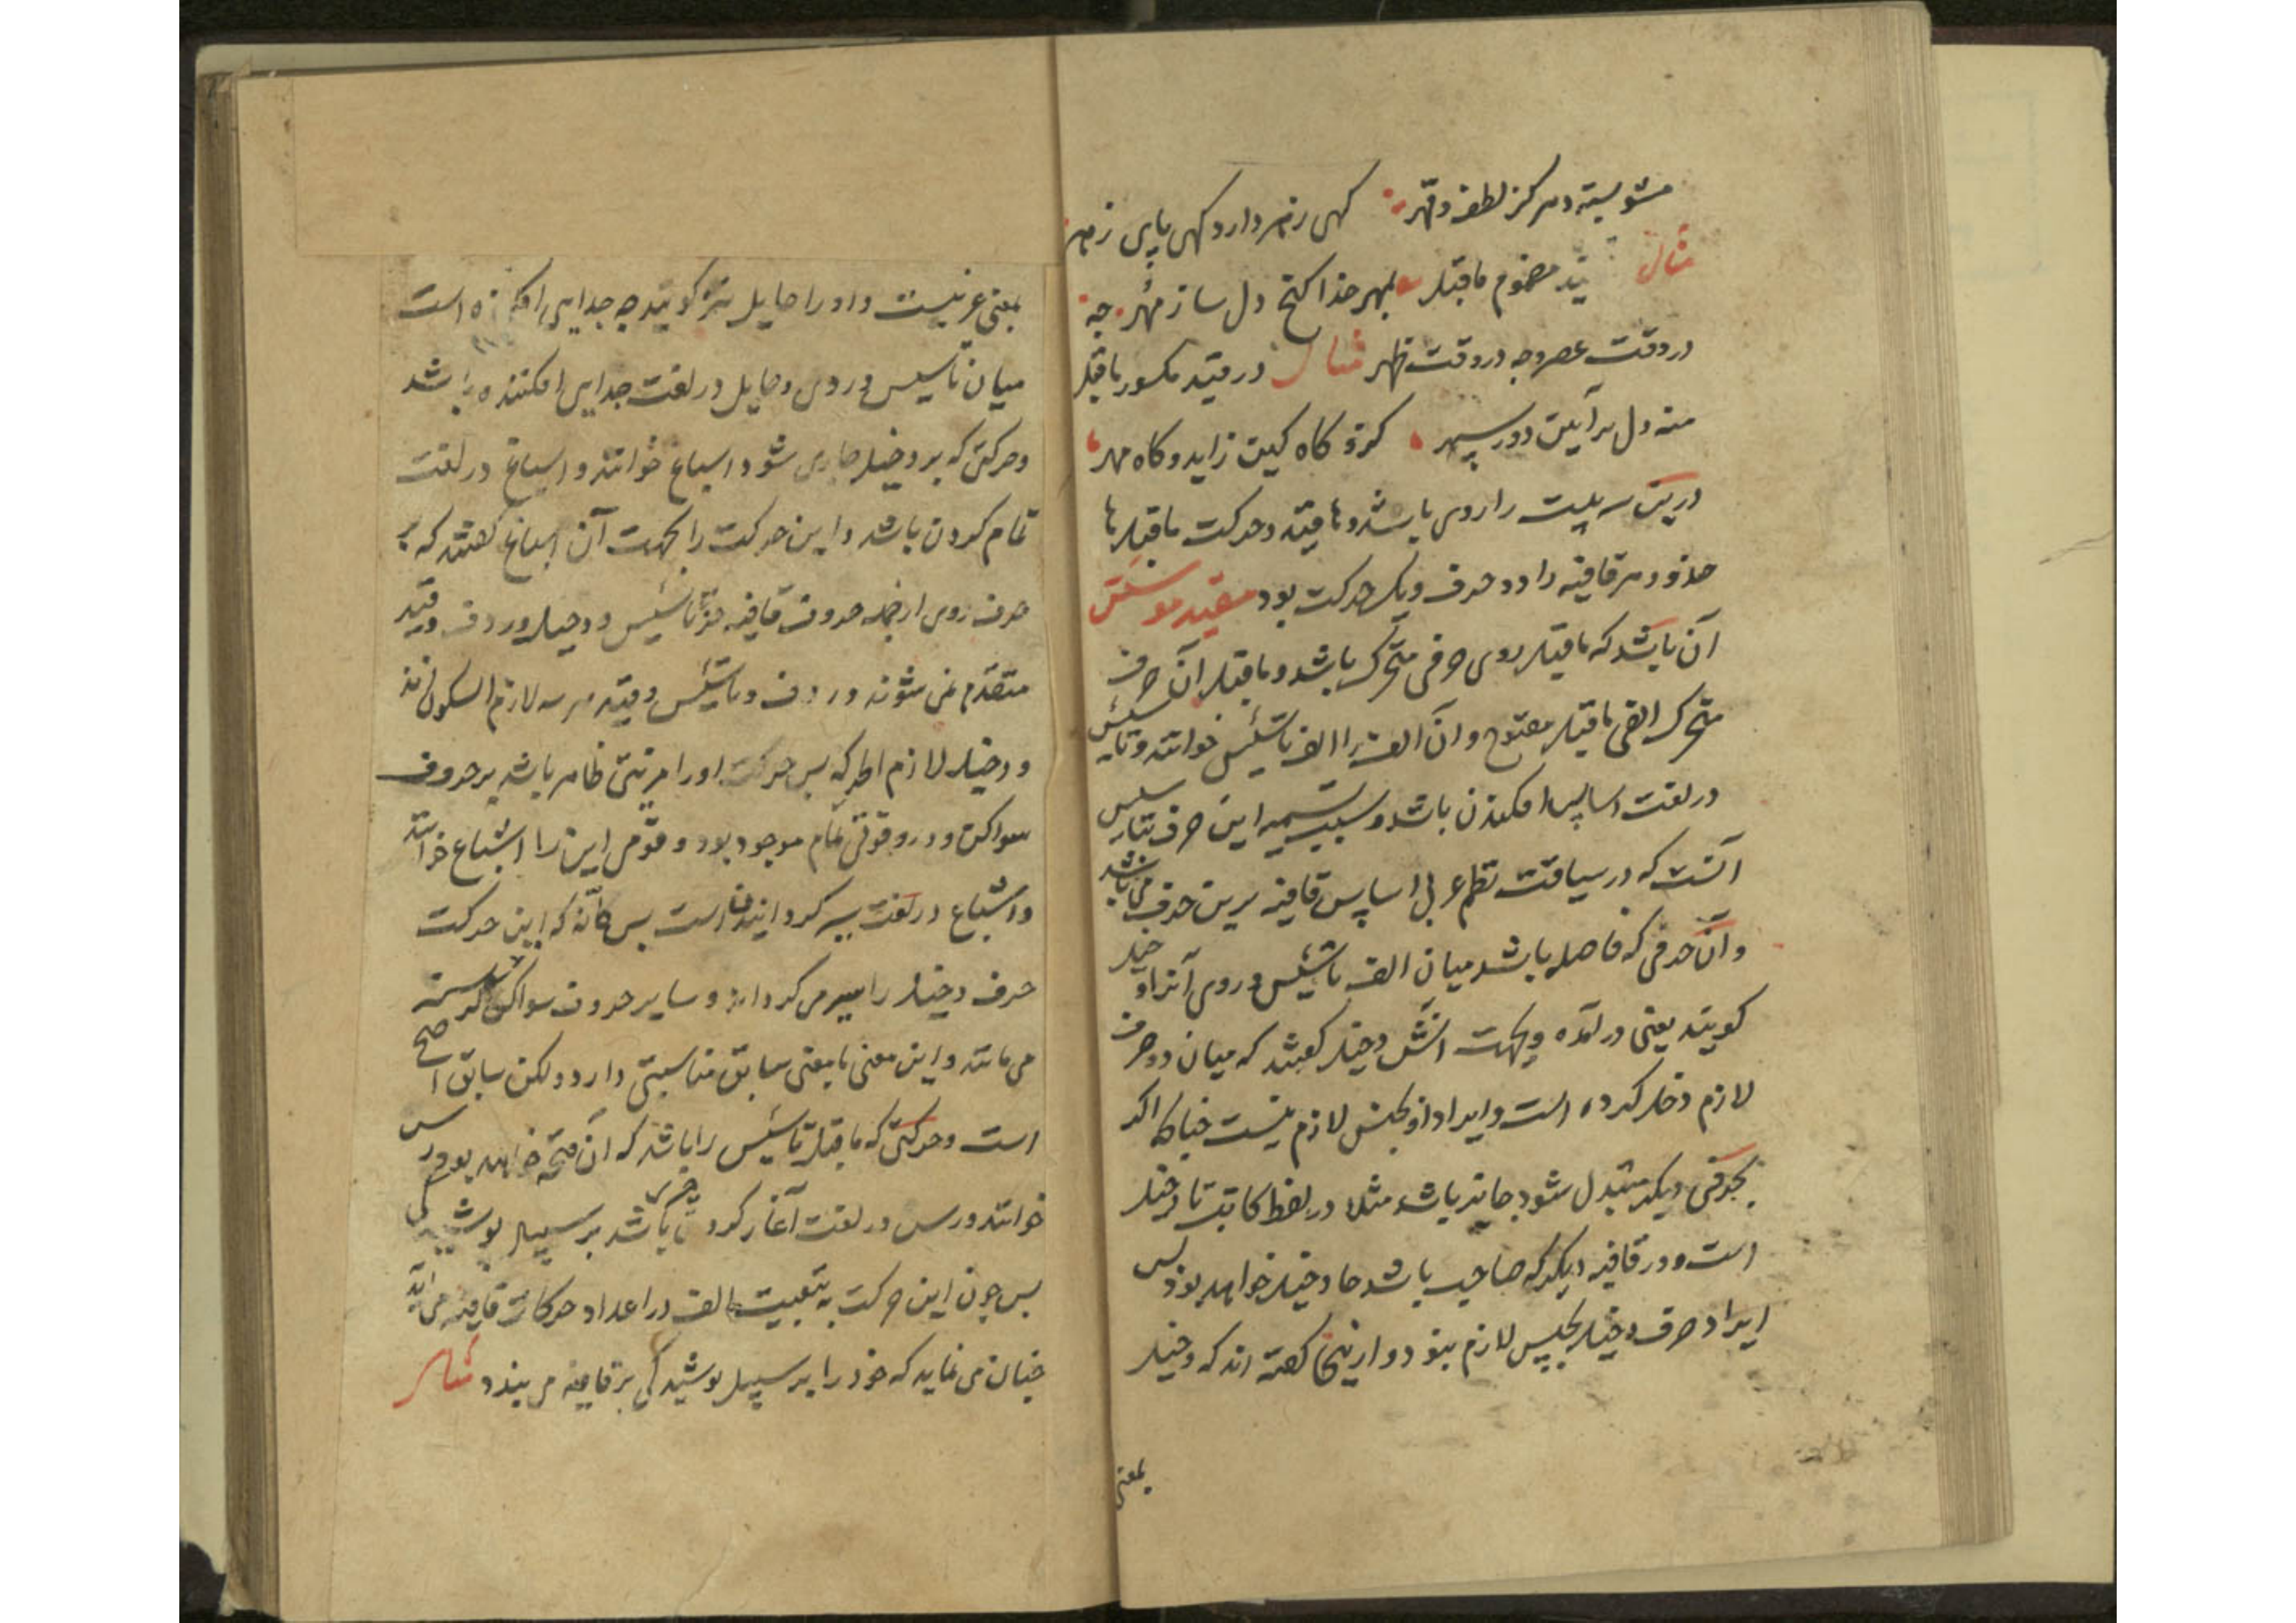 مشو بسته در مرکز لطف و قهر کهی زهر دارد کهی پای زهر
مثال قید مضموم ماقبل بمهر خدا کنج دل ساز مهر چه
در وقت عصر و چه در وقت ظهر مثال در قید مکسور ماقبل
منه دل بر آیین دور سپهر کزو کاه کین زاید و کاه مهر
درین سه بیت را روی باشد و ها قید و حرکت ماقبل ها
حذو و هر قافیه را دو حرف و یک حرکت بود مقید موسس
آن باشد که ماقبل روی حرفی متحرک باشد و ماقبل آن حرف
متحرک الفی ماقبل مفتوح و آن الف را الف تاسیس خوانند و تاسیس
در لغت اساس افکندن باشد و سبب تسمیه این حرف بتاسیس
آنست که در سیاقت نظم عربی اساس قافیه برین حرف می باشد
و آن حرفی که فاصله باشد میان الف تاسیس و روی آنرا دخیل
کویند یعنی در آمده و بجهت آنش دخیل کفتند که میان دو حرف
لازم دخل کرده است و ایراد او بجنس لازم نیست چنانکه اکر
بحرفی دیکر متبدل شود جایز باشد مثلا در لفظ کاتب تا دخیل
است و در قافیه دیکر که صاحب باشد حا دخیل خواهد بود پس
ایراد حرف دخیل بجنس لازم نبود و از اینجا کفته اند که دخیل
بمعنی
بمعنی عربیست و او را حایل نیز کویند چه جدایی افکنده است
میان تاسیس و روی و حایل در لغت جدایی افکننده باشد
و حرکتی که بر دخیل جاری شود اسباغ خوانند و اسباغ در لغت
تمام کردن باشد و این حرکت را بجهت آن اسباغ کفتند که بر
حرف روی از جمله حروف قافیه جز تاسیس و دخیل و ردف و قید
متقدم نمی شوند و ردف و تاسیس و قید هر سه لازم السکون اند
و دخیل لازم الحرکه پس حرکت او را مزیتی ظاهر باشد بر حروف
سواکن و در و قوتی تمام موجود بود و قومی این را اشباع خوانند
و اشباع در لغت سیر کردانیدن است پس کانه که این حرکت
حرف دخیل را سیر می کرداند و سایر حروف سواکن کرسنه
می مانند و این معنی با معنی سابق مناسبتی دارد ولکن سابق اصح
است و حرکتی که ماقبل تاسیس را باشد که آن فتحه خواهد بود رس
خوانند و رس در لغت آغاز کردن چیزی باشد بر سبیل پوشیدکی
پس چون این حرکت به تبعیت الف در اعداد حرکات قافیه می آید
چنان می نماید که خود را بر سبیل پوشیدکی بر قافیه می بندد مثال